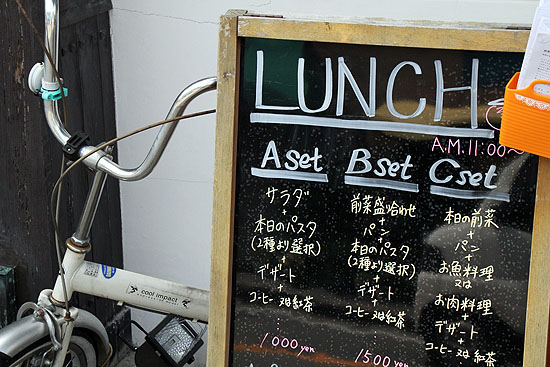 LUNCH
A.M.11:00〜
A set
サラダ
+
本日のパスタ
(2種より選択)
+
デザート
+
コーヒー又は紅茶
1000 yen
B set
前菜盛り合わせ
+
パン
+
本日のパスタ
(2種より選択)
+
デザート
+
コーヒー又は紅茶
1500 yen
C set
本日の前菜
+
パン
+
お魚料理
又は
お肉料理
+
デザート
+
コーヒー又は紅茶
cool impact